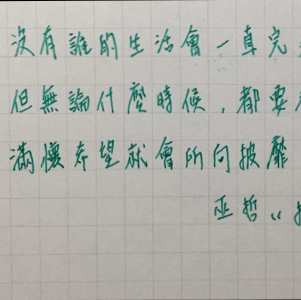 沒有誰的生活會一真完
但無論什麼時候，都要
滿懷希望就會所向披靡
巫哲 “